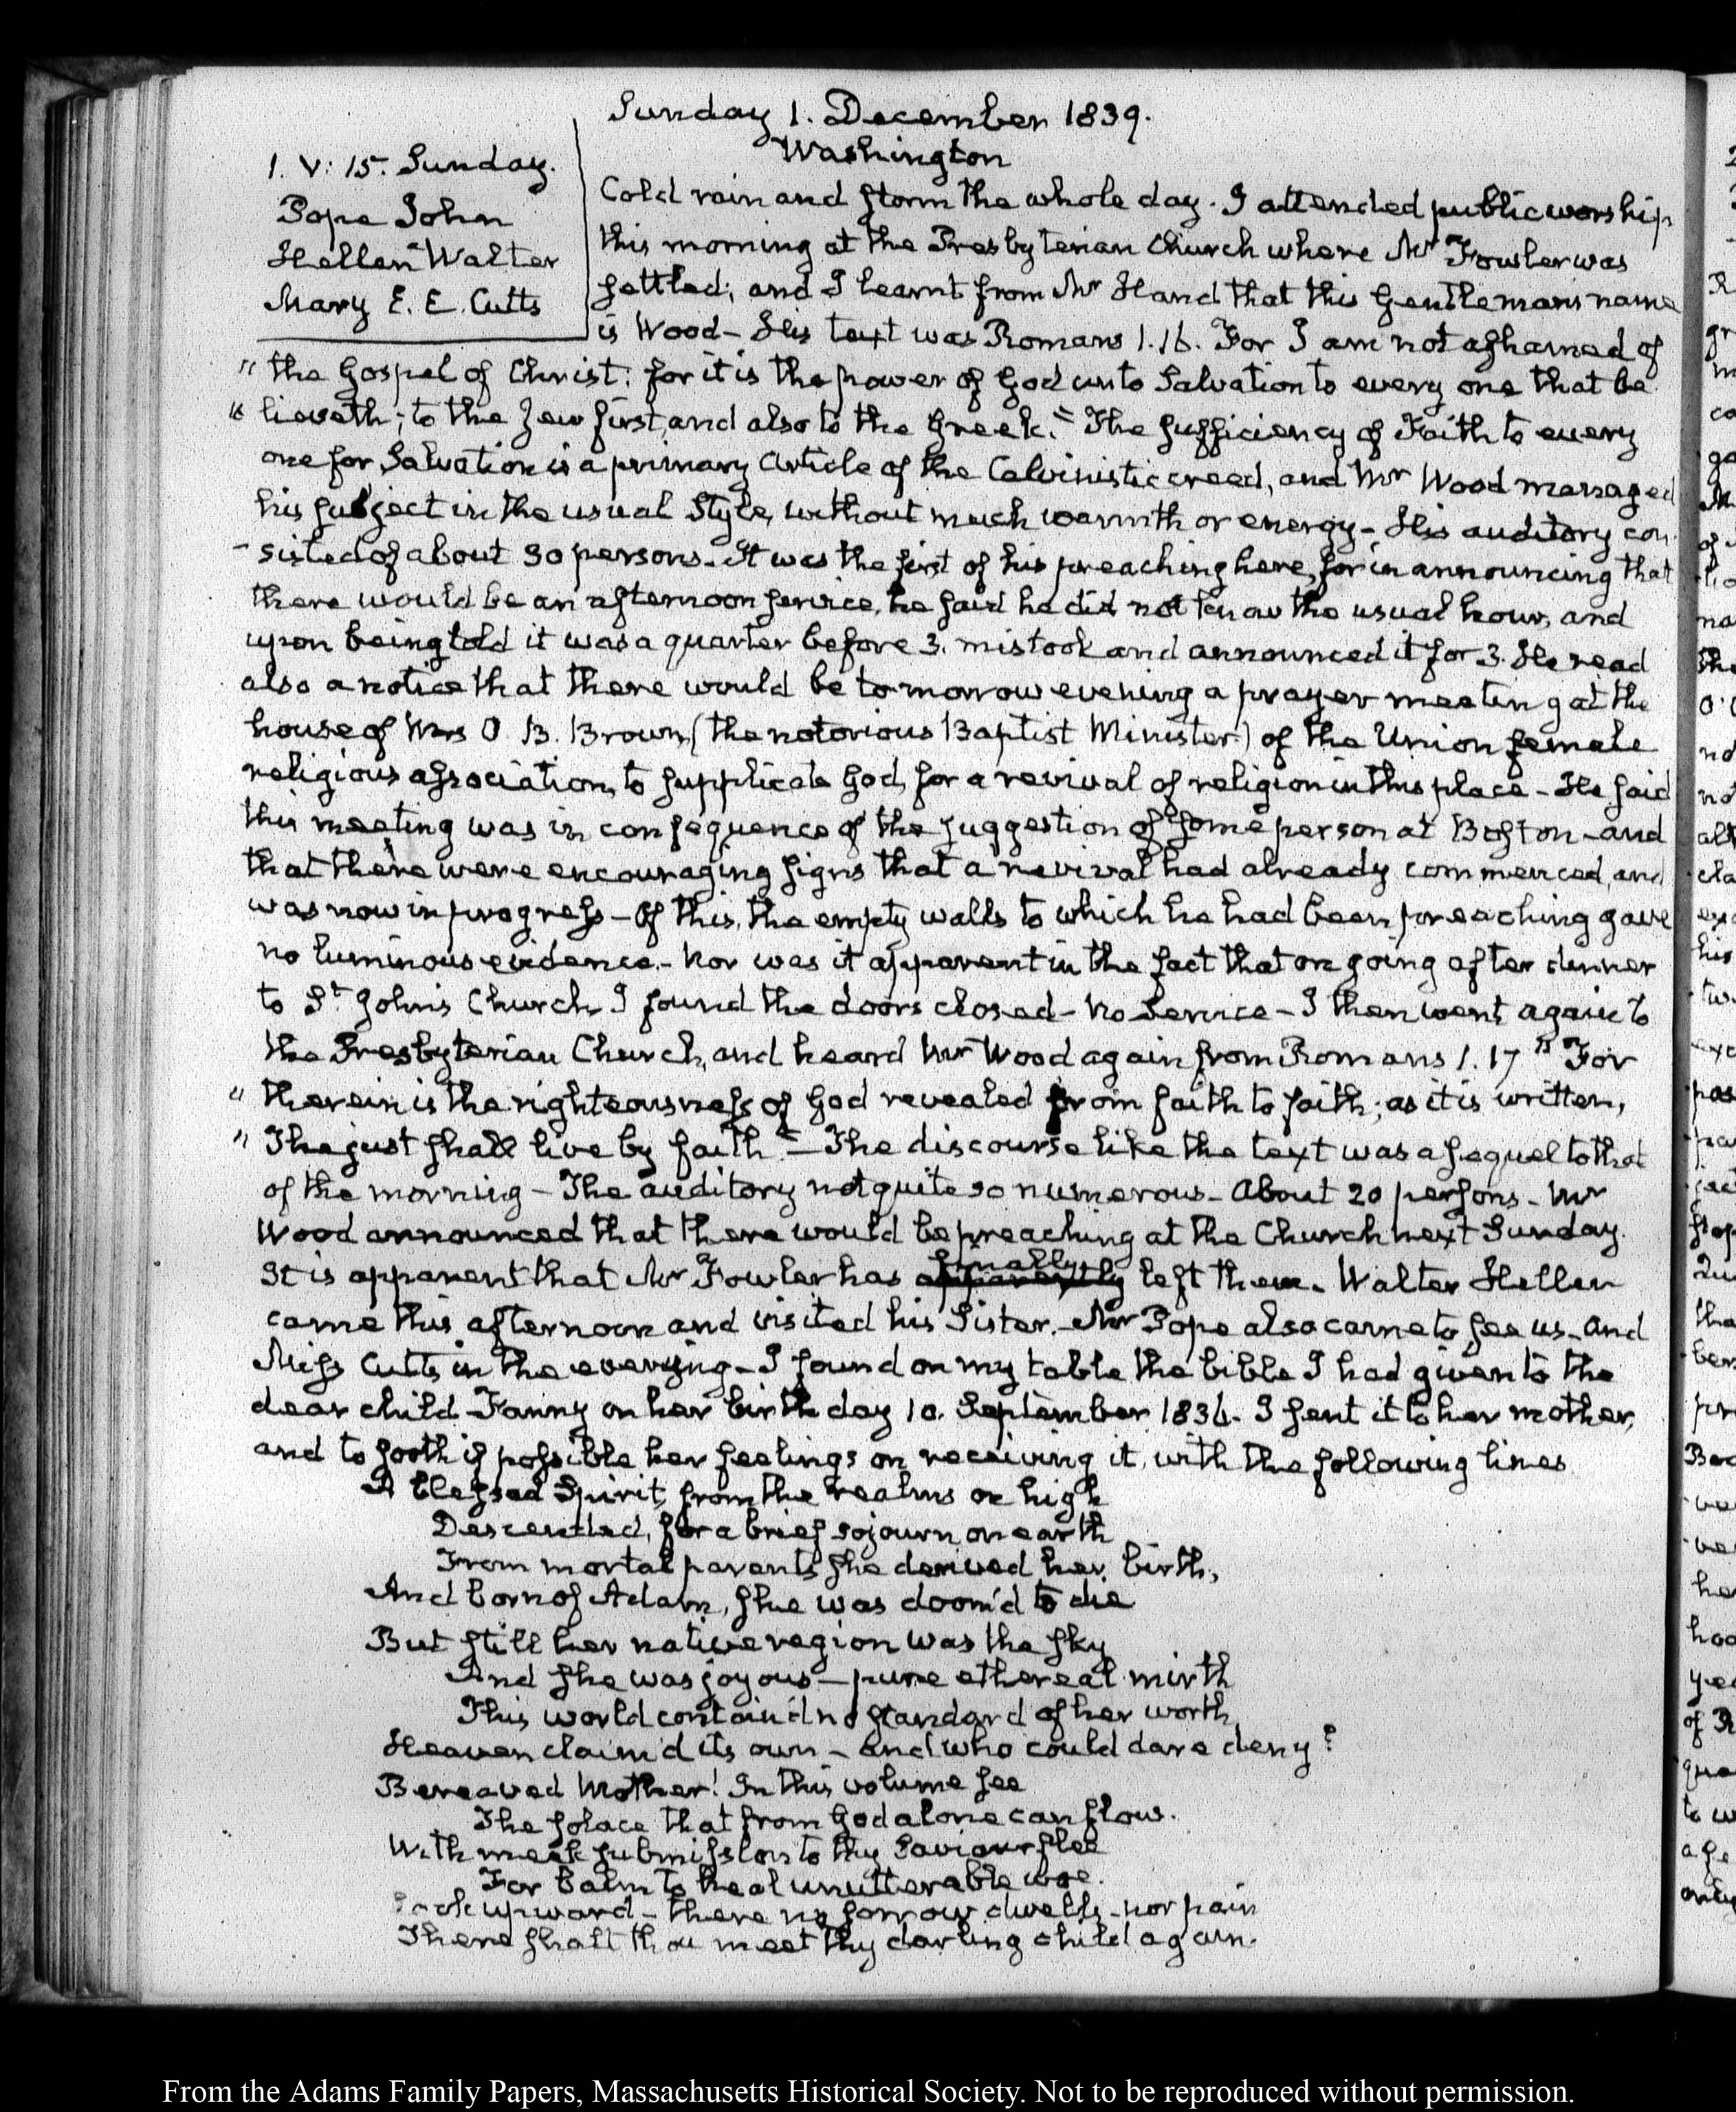 Sunday 1. December 1839.
Washington
1. V: 15. Sunday.
Pope John
Hellen Walter
Mary E. E. Cutts
Cold rain and storm the whole day. I attended public worship
this morning at the Presbyterian Church where Mr Fowler was
settled; and I learnt from Mr Hand that this Gentleman's name
is Wood— His text was Romans 1.16. For I am not ashamed of
" the Gospel of Christ: for it is the power of God unto Salvation to every one that be
" lieveth; to the Jew first, and also to the Greek." The sufficiency of Faith to every
one for Salvation is a primary article of the Calvinistic creed, and Mr Wood managed
his subject in the usual Style, without much warmth or energy— His auditory con
-sisted of about 30 persons. It was the first of his preaching here, for in announcing that
there would be an afternoon service, he said he did not know the usual hour, and
upon being told it was a quarter before 3. mistook and announced it for 3. He read
also a notice that there would be to-morrow evening a prayer meeting at the
house of Mrs O. B. Brown, (the notorious Baptist Minister) of the Union female
religious association, to supplicate God, for a revival of religion in this place— He said
this meeting was in consequence of the suggestion of some person at Boston—and
that there were encouraging signs that a revival had already commenced, and
was now in progress— Of this, the empty walls to which he had been preaching gave
no luminous evidence.— Nor was it apparent in the fact that on going after dinner
to St. John's Church I found the doors closed— No Service— I then went again to
the Presbyterian Church, and heard Mr Wood again from Romans 1.17 " For
" therein is the righteousness of God revealed from faith to faith; as it is written,
" The just shall live by faith."— The discourse like the text was a sequel to that
of the morning— The auditory not quite so numerous— About 20 persons— Mr
Wood announced that there would be preaching at the Church next Sunday.
It is apparent that Mr Fowler has apparently finally left them. Walter Hellen
came this afternoon and visited his Sister.— Mr Pope also came to see us—and
Miss Cutts in the evening— I found on my table the bible I had given to the
dear child Fanny on her birth day 10. September 1836— I sent it to her mother,
and to sooth if possible her feelings on receiving it, with the following lines
A blessed Spirit, from the realms on high
Descended, for a brief sojourn on earth
From mortal parents she derived her birth,
And born of Adam, she was doom'd to die
But still her native region was the sky
And she was joyous— pure ethereal mirth
This world contain'd no standard of her worth
Heaven claim'd its own— and who could dare deny?
Bereaved Mother! In this volume see
The solace that from God alone can flow.
With meek submission to thy Saviour flee
For balm to heal unutterable woe.
Look upward— there no sorrow dwells— nor pain
There shalt thou meet thy darling child again.
From the Adams Family Papers, Massachusetts Historical Society. Not to be reproduced without permission.